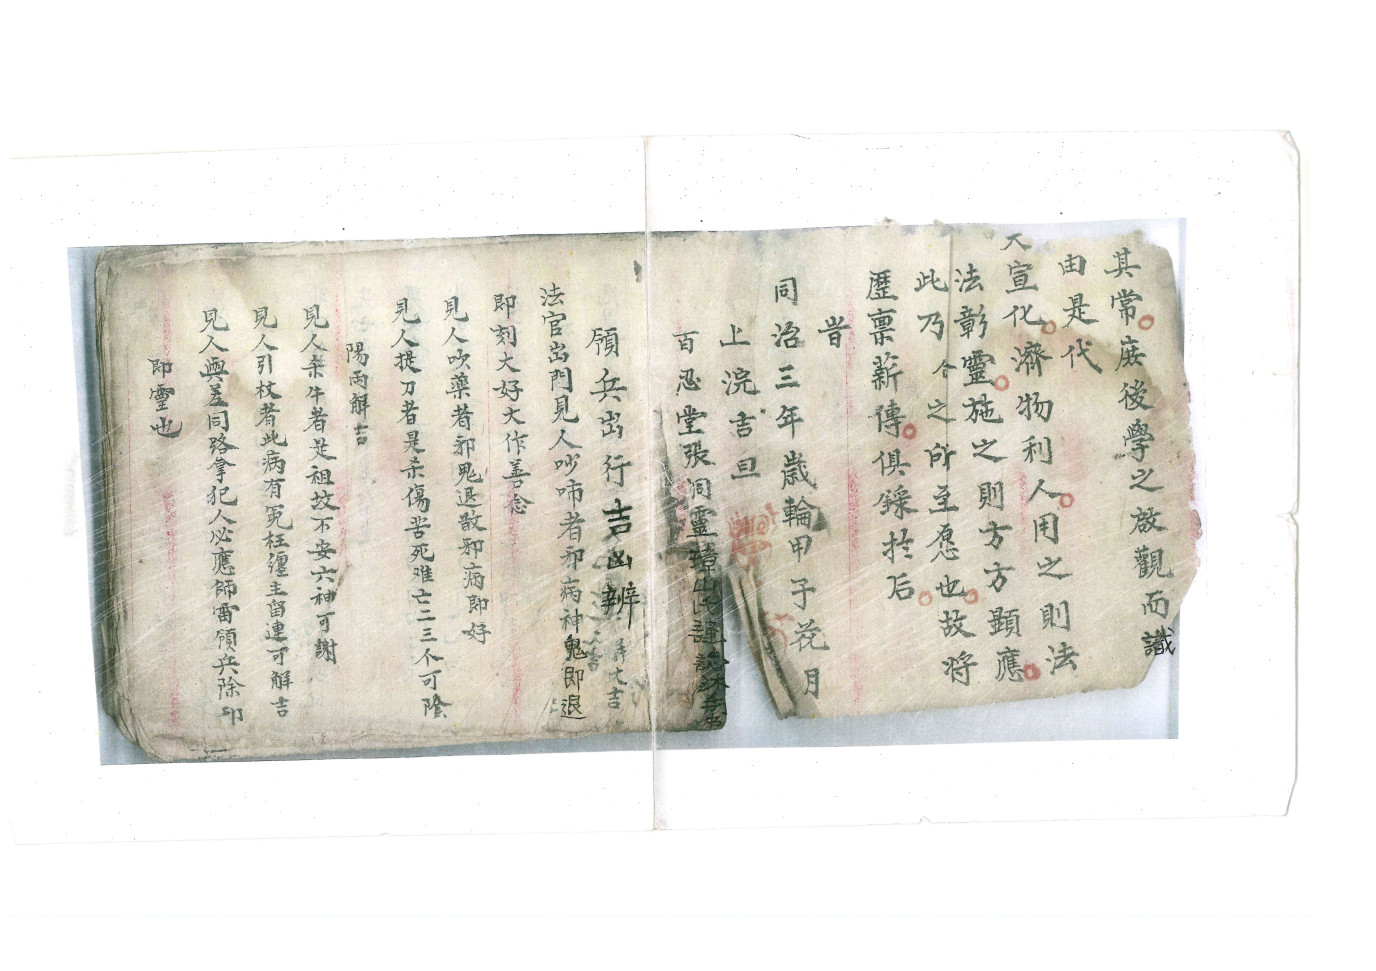 其常庻後學之啟觀而識
由是代
天宣化濟物利人用之則法
法彰靈施之則方方顕應
此乃今之所至愿也故将
歷禀薪傳俱錄扵后
旹
同治三年歲輪甲子花月
上浣吉旦
百忍堂張洞靈
領兵出行吉凶辨
法官出門見人吵啼者邪病神鬼即退
即刻大好大作善念
見人吹藥者邪鬼退散邪病即好
見人提刀者是杀傷苦死难亡二三不可除
陽雨解吉
見人杀牛者是祖坟不安六神可謝
見人引杖者此病有冤枉纏主留連可解吉
見人與差同路拿犯人必應師雷領兵除邪
即靈也